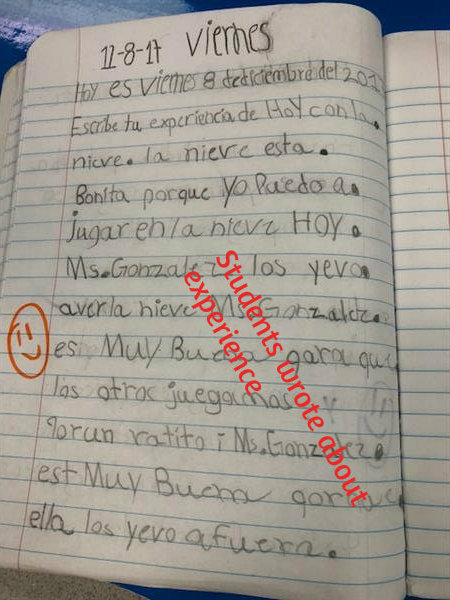 12-8-17 viernes
Hoy es viernes 8 de diciembre del 201
Escribe tu experiencia de Hoy con la.
nieve. la nieve esta.
Bonita porque yo Puedo a.
jugar en la nieve HOY.
Ms. Gonzalez los yevo.
a ver la nieve Ms. Gonzalez.
es MUY Buena porque
los otros juegamos y
por un ratito i Ms. Gonzalez.
est MUY Buena porque
ella los yevo afuera.
Students wrote about
experience